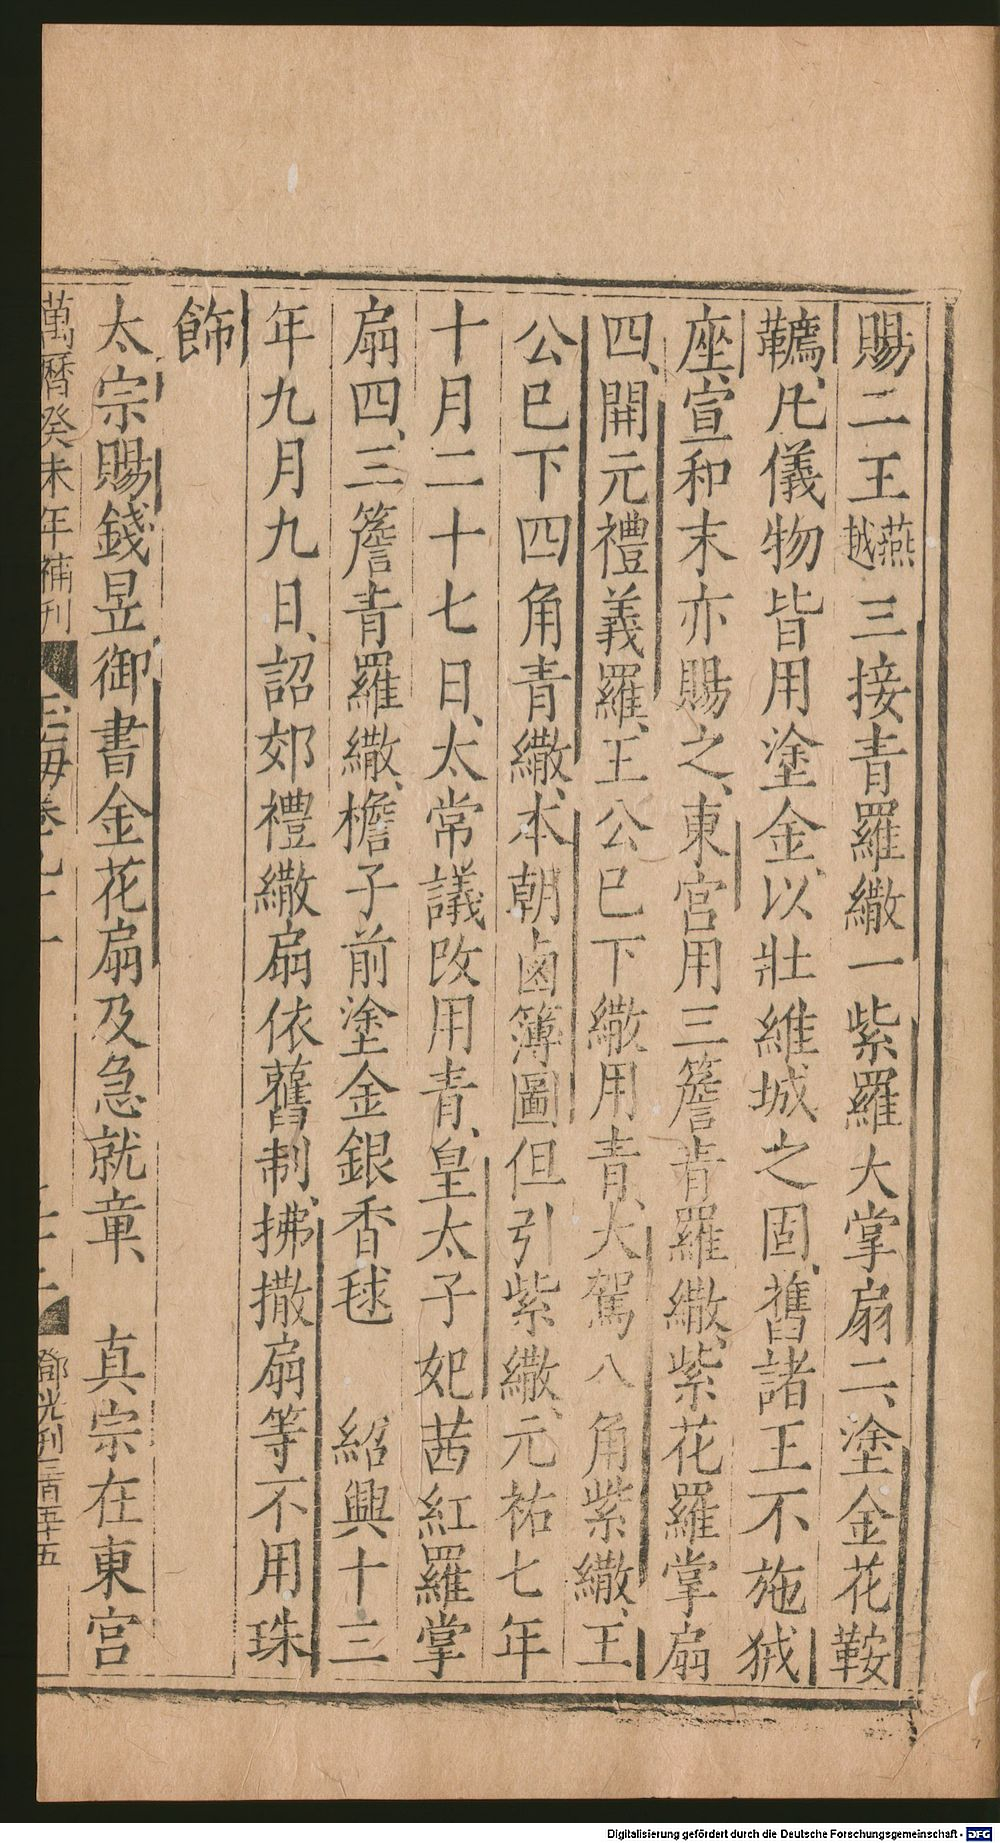 賜二王燕越三接青羅繖一紫羅大掌扇二、塗金花鞍
韉、凡儀物皆用塗金、以壯維城之固、舊諸王不施狨
座、宣和末亦賜之、東宮用三簷青羅繖、紫花羅掌扇
四、開元禮義羅、王公已下繖用青、大駕八角紫繖、王
公已下四角青繖、本朝鹵簿圖但引紫繖、元祐七年
十月二十七日、太常議改用青、皇太子妃茜紅羅掌
扇四、三簷青羅繖、檐子前塗金銀香毬 紹興十三
年九月九日、詔郊禮繖扇依舊制、拂撒扇等不用珠
飾
太宗賜錢昱御書金花扇及急就章、 真宗在東宮
萬曆癸未年補刊 玉海卷九十一 鄧光刊三百五十五
Digitalisierung gefördert durch die Deutsche Forschungsgemeinschaft - DFG